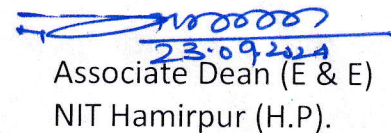 23.09.2024
Associate Dean (E & E)
NIT Hamirpur (H.P).